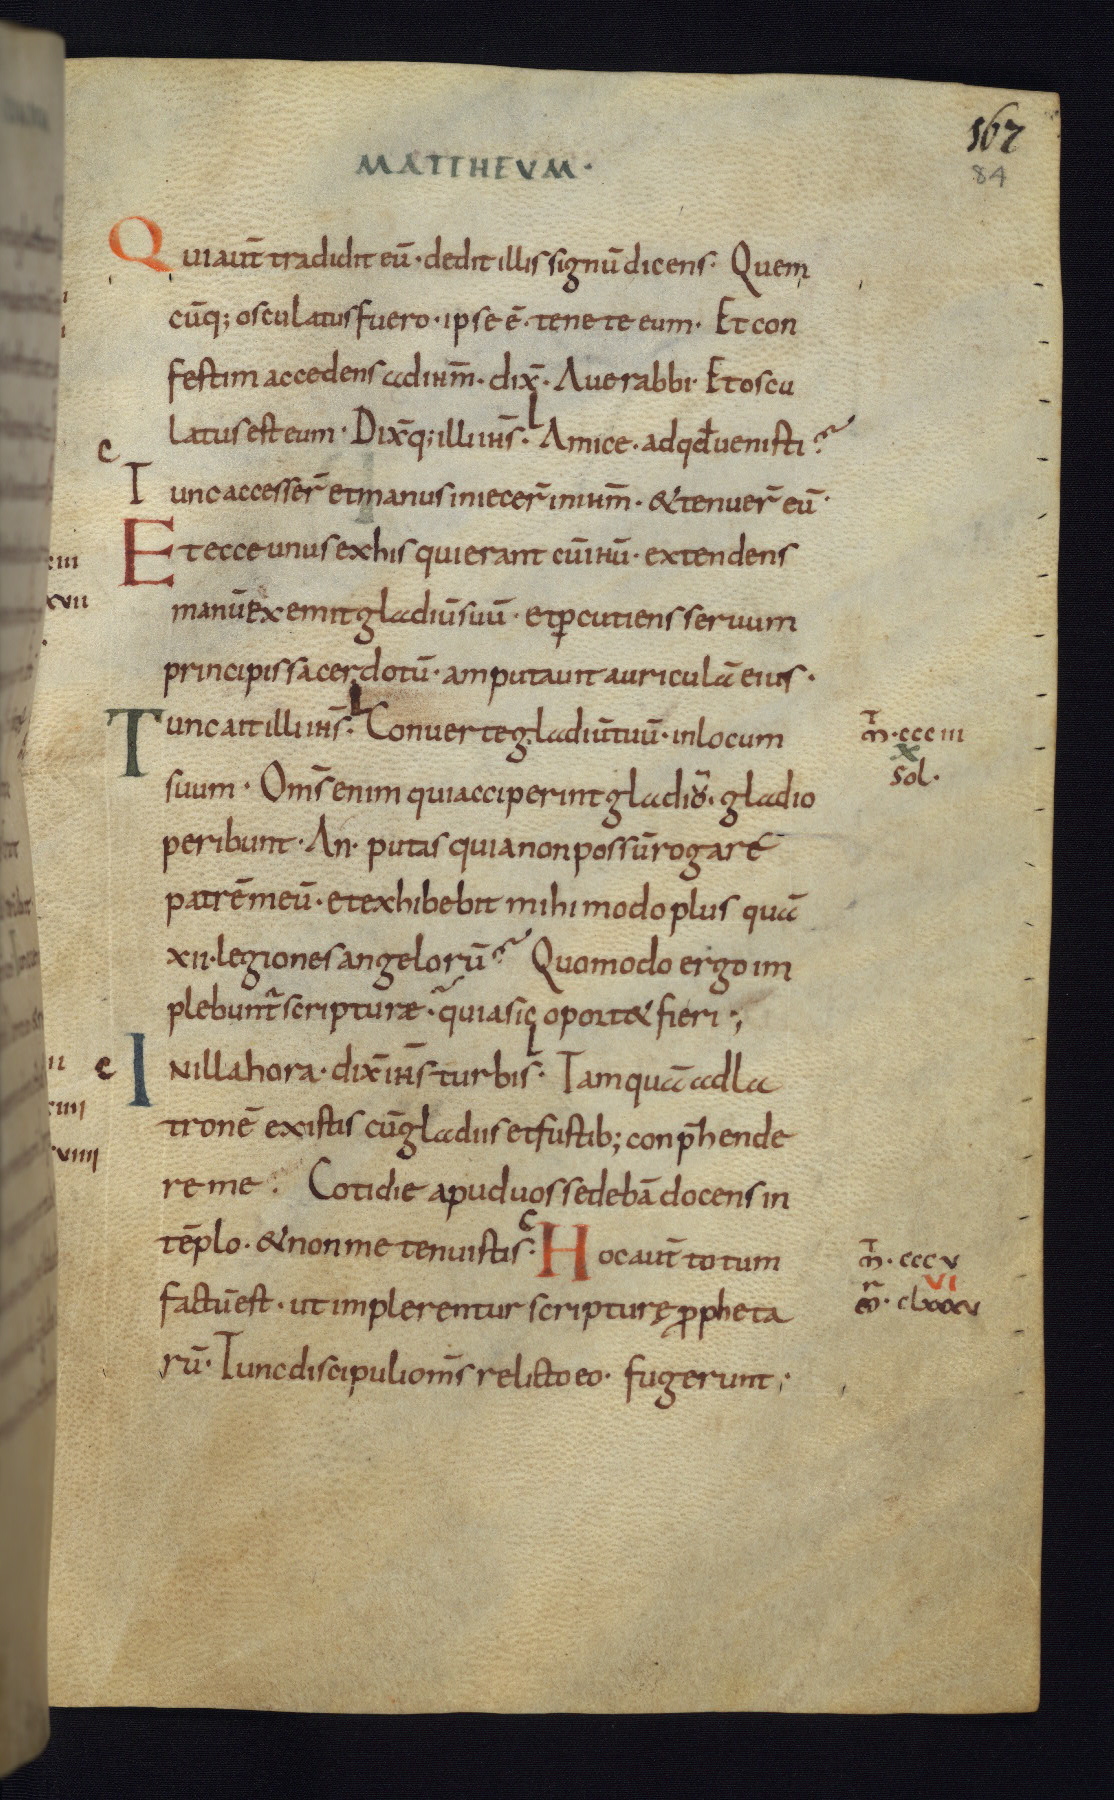 162
84
MATTHEVM·
Qui aut̄ tradidit eū· dedit illis signū dicens· Quem
cūq; osculatus fuero· ipse ē· tenete eum· Et con
festim accedens ad ihm̄· dix̄· Aue rabbi· Et oscu
latus est eum· Dix̄q; illi ihs̄· l Amice· ad qd̄ uenisti?
c
Tunc accesser̄ et manus iniecer̄ in ihm̄· & tenuer̄ eū·
Et ecce unus ex his qui erant cū ihū· extendens
manū exemit gladiū suū· et ꝑcutiens seruum
principis sacerdotū· amputauit auriculā eius·
Tunc ait illi ihs̄· l Conuerte gladiū tuū· in locum
suum· Oms̄ enim qui acciperint gladiū· gladio
peribunt· An· putas quia non possū rogare
patrē meū· et exhibebit mihi modo plus quā
xii· legiones angelorū? Quomodo ergo im
plebunt̄ scripturæ· quia sic oport& fieri·;
c
In illa hora· dix̄ ihs̄ turbis· l Tamquā ad la
tronē existis cū gladiis et fustib; conp̄hende
re me· Cotidie apud uos sedebā docens in
tēplo· & non me tenuistis· c Hoc aut̄ totum
factū est· ut implerentur scripturę ꝓpheta
rū· Tunc discipuli oms̄ relicto eo· fugerunt·
m̄· ccciii
x
sol·
m̄· cccv
vi
m̄r· clxxxv